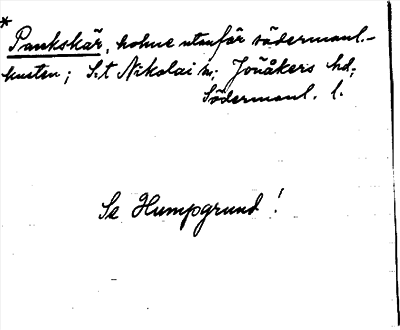 *
Pankskär, holme utanför södermanl.-
kusten; S:t Nikolai sn; Jönåkers hd;
Södermanl. l.
Se Humpgrund!